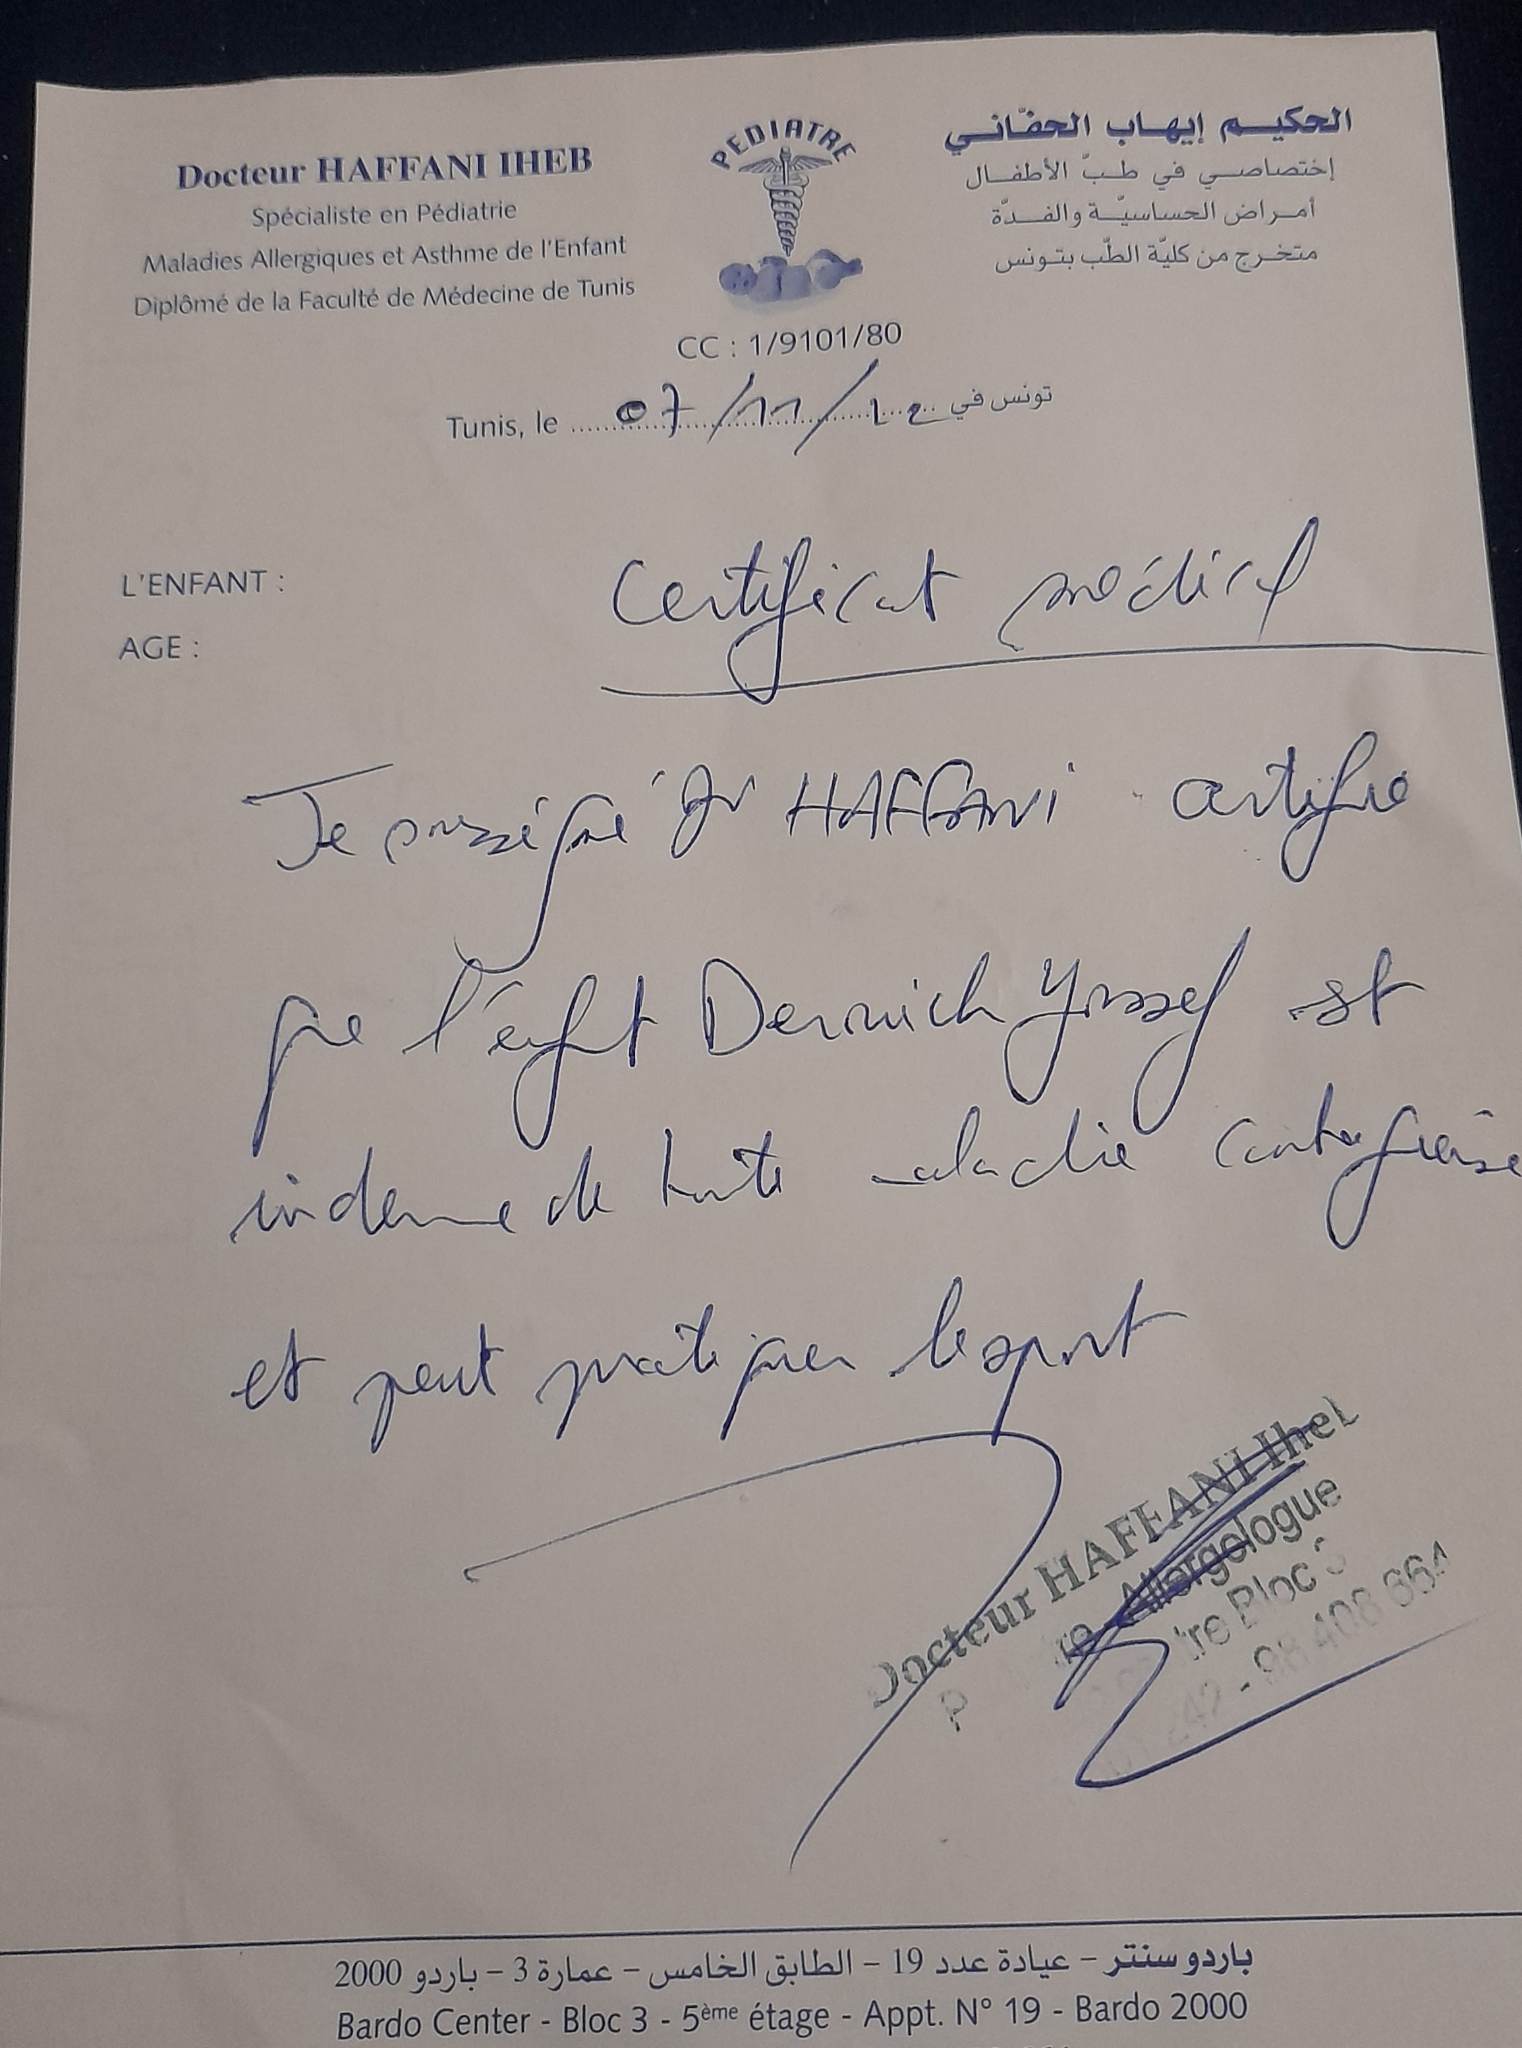 Docteur HAFFANI IHEB
Spécialiste en Pédiatrie
Maladies Allergiques et Asthme de l'Enfant
Diplômé de la Faculté de Médecine de Tunis
PEDIATRE
الحكيم إيهاب الحفّاني
إختصاصي في طبّ الأطفال
أمراض الحساسيّة والفدّة
متخرج من كليّة الطّب بتونس
CC : 1/9101/80
Tunis, le 07/11/22 تونس في
L'ENFANT :
AGE :
Certificat médical
Je soussigné Dr HAFFANI certifie
que l'enfant Derwich Youssef est
indemne de toute maladie contagieuse
et peut pratiquer le sport
Docteur HAFFANI Iheb
Allergologue
Bloc 3
98 408 664
باردو سنتر – عيادة عدد 19 – الطابق الخامس – عمارة 3 – باردو 2000
Bardo Center - Bloc 3 - 5ème étage - Appt. N° 19 - Bardo 2000